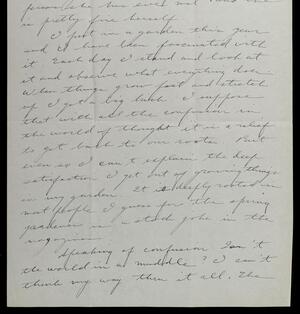 person, she has ever
is pretty fine herself
I put in a garden this year
and I have been fascinated with
it. Each day I stand and look at
it and observe what everything does.
When things grow fast and stretch
up I get a big kick. I suppose
that with all the confusion in
the world of thought it is a relief
to get back to our roots. But
even so I can't explain the deep
satisfaction I get out of growing things
in my garden. It is deeply rooted in
most people I guess for the spring
gardener is a stock joke in the
magazines.
Speaking of confusion Isn't
the world in a muddle? I can't
think my way thru it all. The